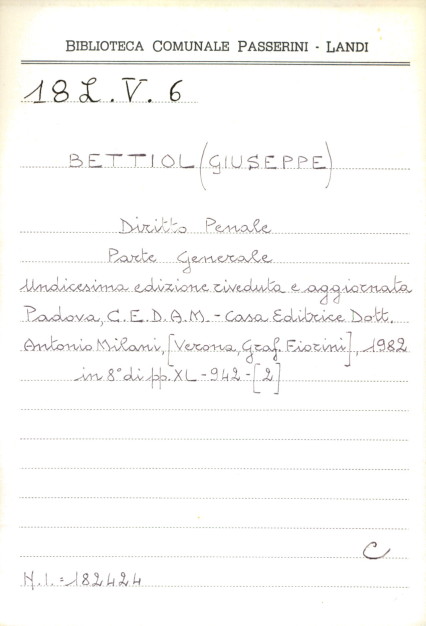 BIBLIOTECA COMUNALE PASSERINI - LANDI
18 L. V. 6
BETTIOL (GIUSEPPE)
Diritto Penale
Parte Generale
Undicesima edizione riveduta e aggiornata
Padova, C.E.D.A.M. - Casa Editrice Dott.
Antonio Milani, [Verona, Graf. Fiorini], 1982
in 8° di pp. XL - 942 - [2]
C
N.I. = 182424